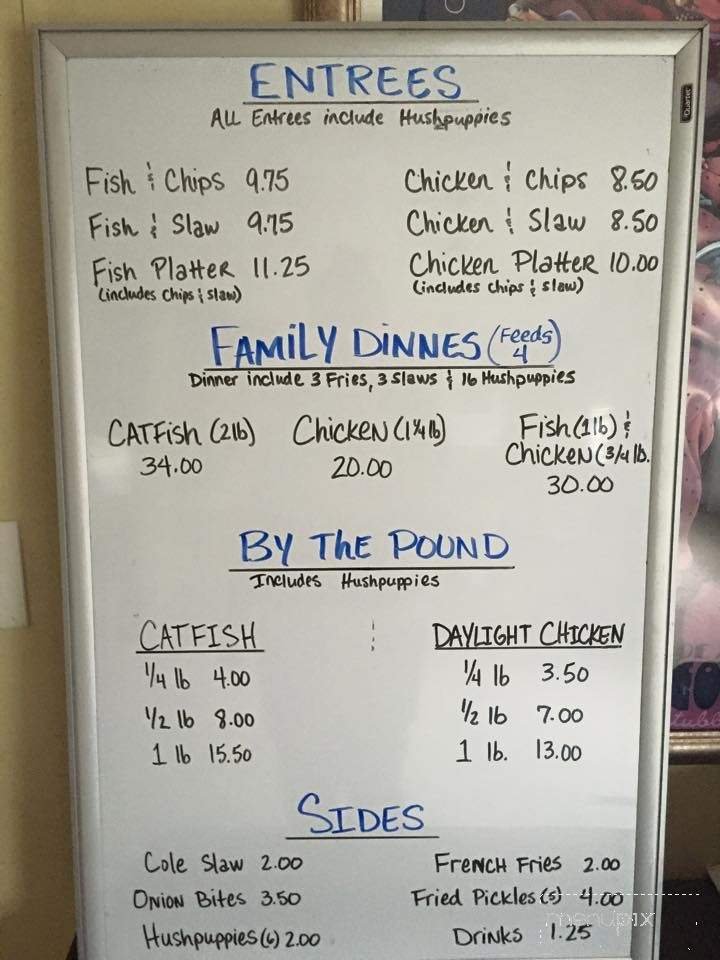 ENTREES
ALL Entrees include Hushpuppies
Fish & Chips 9.75
Chicken & Chips 8.50
Fish & Slaw 9.75
Chicken & Slaw 8.50
Fish Platter 11.25
Chicken Platter 10.00
(includes Chips & Slaw)
(includes chips & slaw)
FAMILY DINNES (Feeds 4)
Dinner include 3 Fries, 3 Slaws & 16 Hushpuppies
CATFish (2lb)
34.00
Chicken (1 1/4 lb)
20.00
Fish (1 lb) &
Chicken (3/4 lb.
30.00
BY The POUND
Includes Hushpuppies
CATFISH
1/4 lb 4.00
1/2 lb 8.00
1 lb 15.50
DAYLIGHT CHICKEN
1/4 lb 3.50
1/2 lb 7.00
1 lb. 13.00
SIDES
Cole Slaw 2.00
French Fries 2.00
Onion Bites 3.50
Fried Pickles (5) 4.00
Hushpuppies (6) 2.00
Drinks 1.25
Quartet
menupix